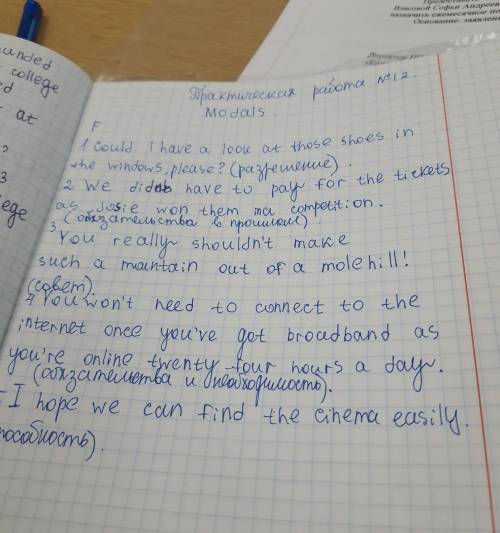 Предоставить
Власовой Софьи Андреев
назначить ежемесячное по
Основание: заявлени
Директор
unded
college
ed
at
?
3
ege
Практическая работа №12.
Modals.
F
1 Could I have a look at those shoes in
the windows, please? (разрешение).
2 We didnt have to pay for the tickets
as Josie won them in a competition.
(обязательства в прошлом).
3 You really shouldn't make
such a maintain out of a molehill!
(совет).
4 You won't need to connect to the
internet once you've got broadband as
you're online twenty-four hours a day.
(обязательства и необходимость).
I hope we can find the cinema easily.
пособность).